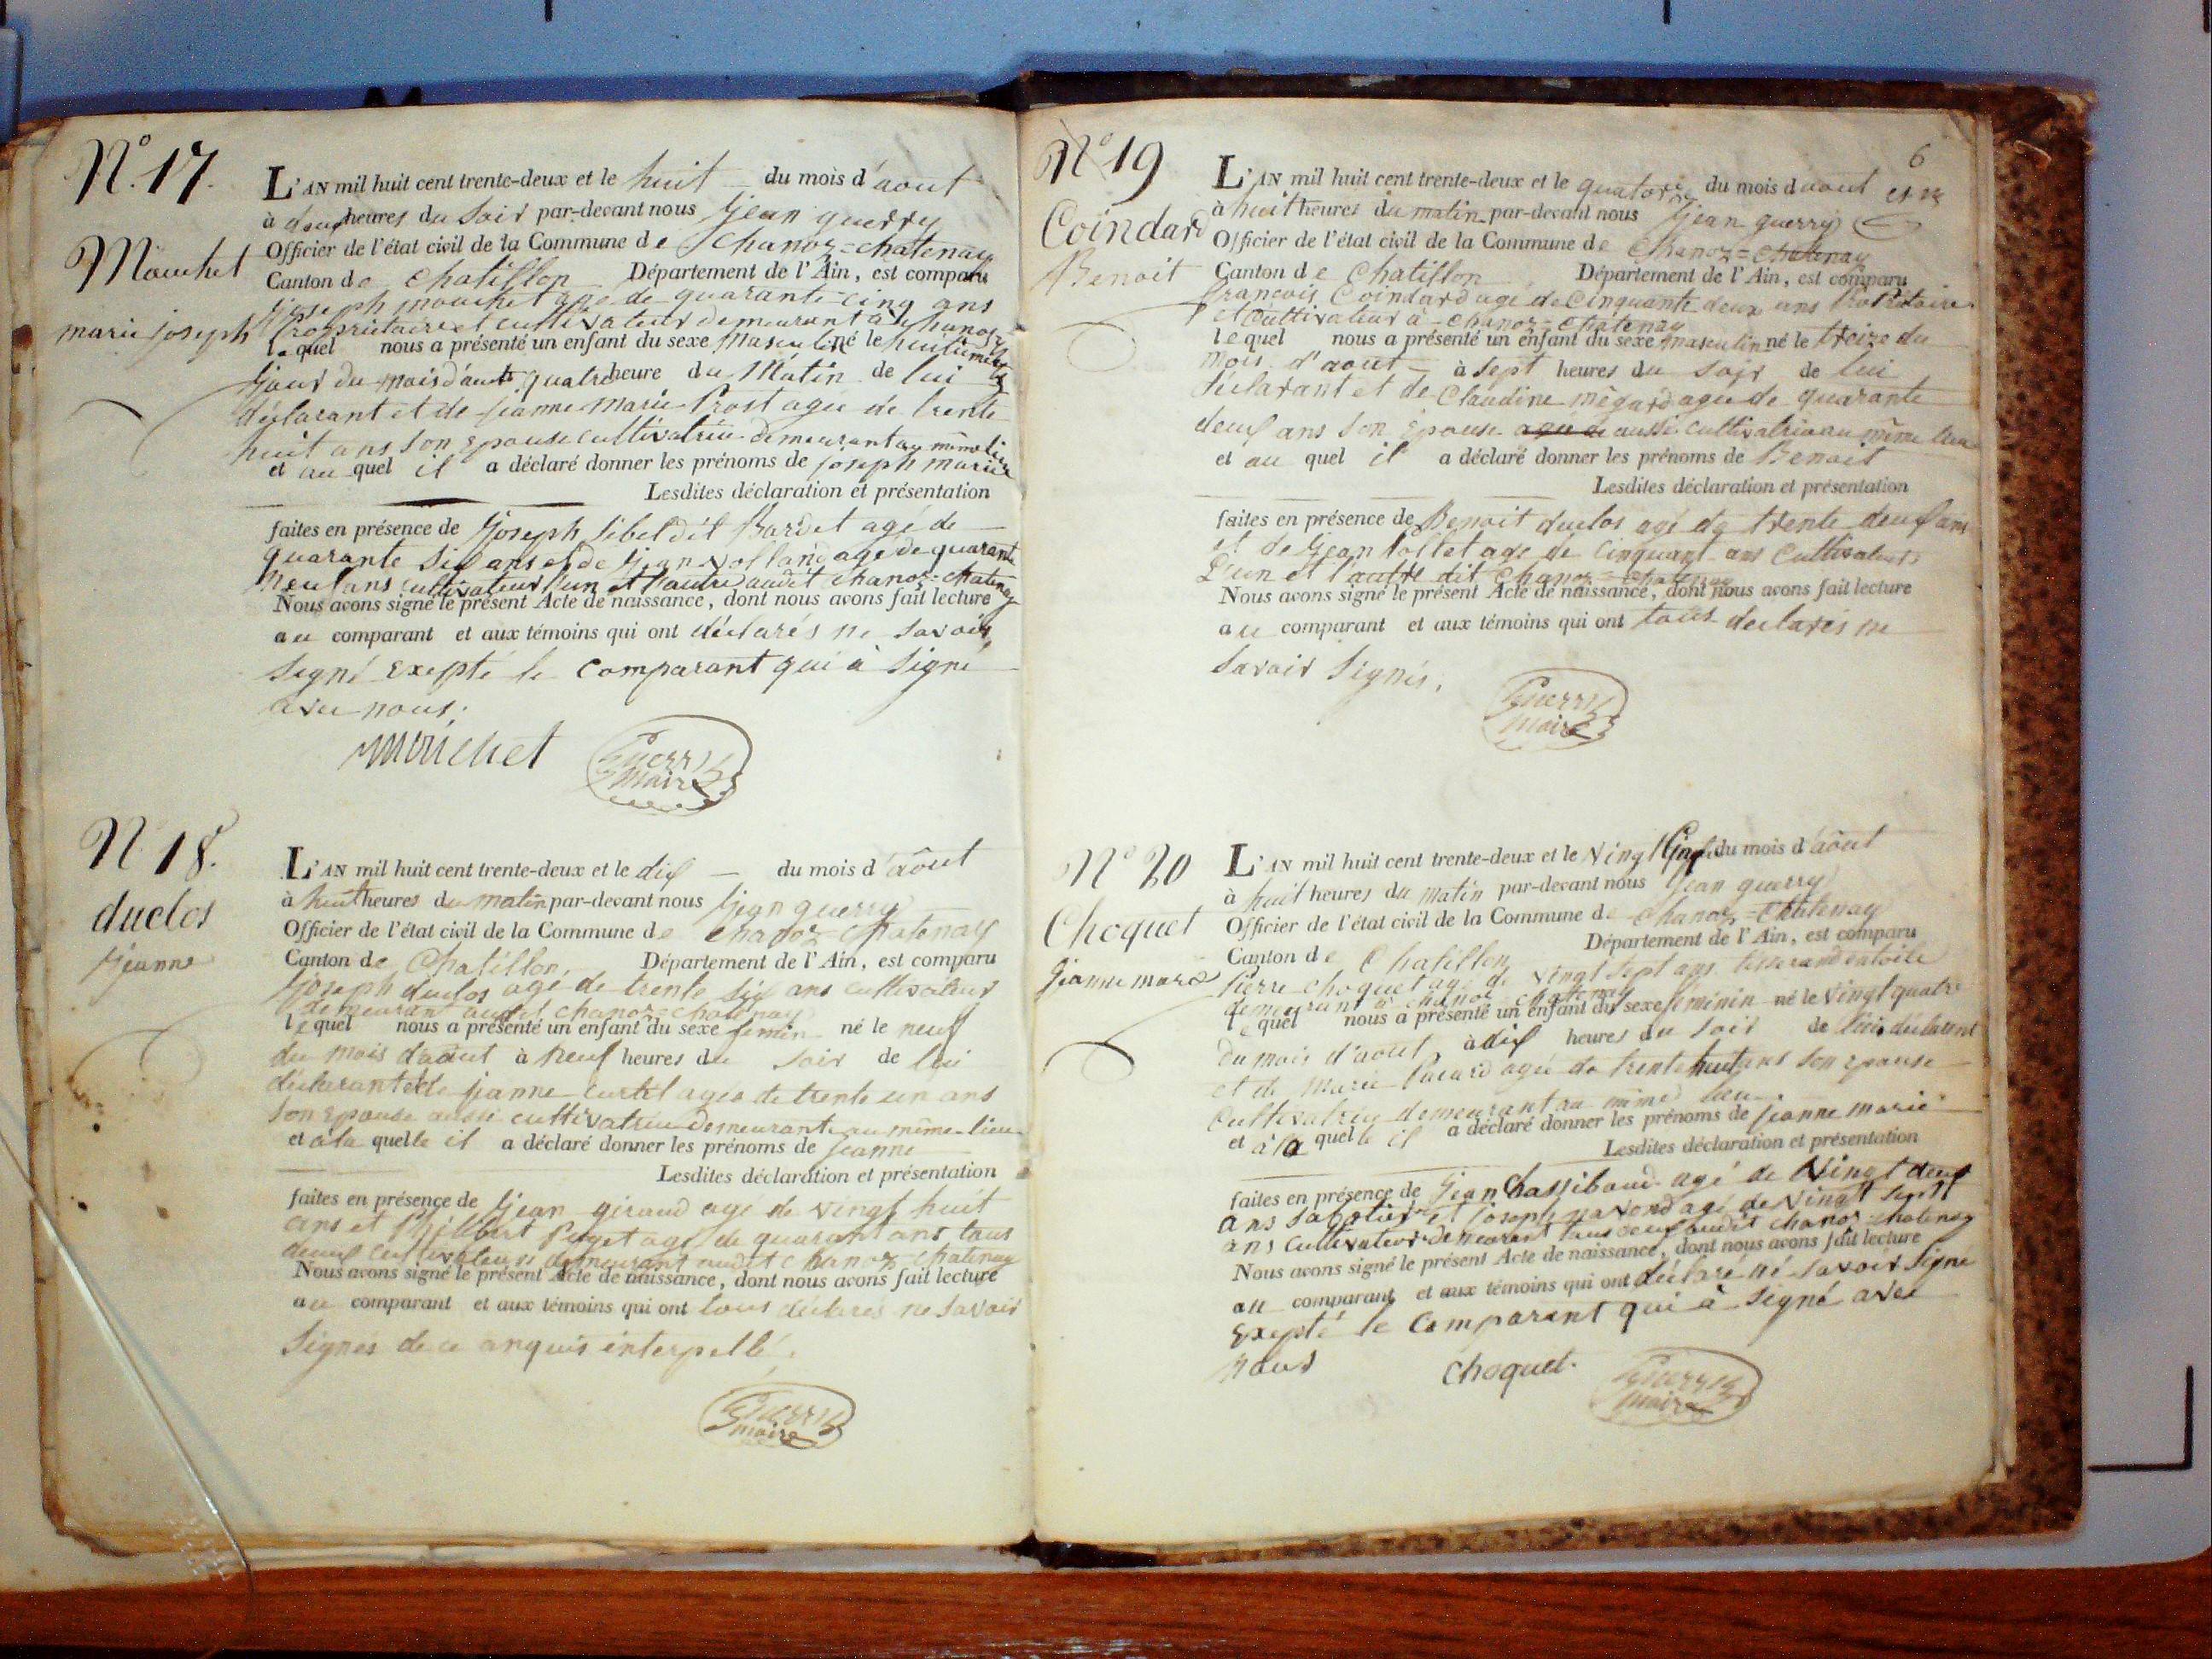 N.° 17.
Mouchet
marie joseph
L'AN mil huit cent trente-deux et le huit du mois d'aout
à deux heures du Soir par-devant nous Jean guerry
Officier de l'état civil de la Commune de Chanoz=chatenay
Canton de Chatillon Département de l'Ain, est comparu
Joseph mouchet agé de quarante-cinq ans
Proprietaire et cultivateur demeurant à Chanoz
lequel nous a présenté un enfant du sexe Masculin né le huitieme
Jour du mois d'aout quatre heure du Matin de lui
déclarant et de jeanne Marie Prost agée de trente
huit ans son epouse cultivatrice demeurant au même lieu
et au quel il a déclaré donner les prénoms de joseph marie
Lesdites déclaration et présentation
faites en présence de Joseph Sibel dit Bardet agé de
quarante Six ans et de Jean volland agé de quarante
neuf ans cultivateur l'un et l'autre audit chanoz=chatenay
Nous avons signé le présent Acte de naissance, dont nous avons fait lecture
au comparant et aux témoins qui ont déclarés ne Savoir
Signé Exepté le Comparant qui à Signé
avec nous.
mouchet Guerry
Maire
N° 18.
duclos
Jeanne
L'AN mil huit cent trente-deux et le dix du mois d'août
à huit heures du matin par-devant nous Jean guerry
Officier de l'état civil de la Commune de Chanoz-Chatenay
Canton de Chatillon, Département de l'Ain, est comparu
Joseph duclos agé de trente Six ans cultivateur
demeurant audit chanoz=chatenay
lequel nous a présenté un enfant du sexe femin né le neuf
du mois d'août à neuf heures du soir de lui
déclarant et de jeanne curtil agée de trente un ans
Son epouse aussi cultivatrice demeurante au même lieu
et à la quelle il a déclaré donner les prénoms de Jeanne
Lesdites déclaration et présentation
faites en présence de Jean giraud agé de vingt huit
ans et Philibert Puget agé de quarant ans tous
deux cultivateurs demeurant audit Chanoz-Chatenay
Nous avons signé le présent Acte de naissance, dont nous avons fait lecture
au comparant et aux témoins qui ont tous déclarés ne Savoir
Signés de ce anquis interpellé.
Guerry
maire
6
N° 19
Coindard
Benoit
L'AN mil huit cent trente-deux et le quatorze du mois d'aout
à huit heures du matin par-devant nous Jean guerry
Officier de l'état civil de la Commune de Chanoz=Chatenay
Canton de Chatillon Département de l'Ain, est comparu
françois Coindard agé de Cinquante deux ans Propriétaire
et Cultivateur à Chanoz=Chatenay
lequel nous a présenté un enfant du sexe masculin né le treize du
mois d'aout à Sept heures du soir de lui
déclarant et de Claudine mégard agée de quarante
deux ans Son Epouse agée de aussi cultivatrice au même lieu
et au quel il a déclaré donner les prénoms de Benoit
Lesdites déclaration et présentation
faites en présence de Benoit duclos agé de trente deux ans
et de Jean tollet age de Cinquant ans Cultivateurs
L'un et l'autre dit Chanoz=Chatenay
Nous avons signé le présent Acte de naissance, dont nous avons fait lecture
au comparant et aux témoins qui ont tous declarés ne
Savoir Signés.
Guerry
Maire
N° 20
Choquet
Jeanne marie
L'AN mil huit cent trente-deux et le Vingt Cinq du mois d'août
à huit heures du matin par-devant nous Jean guerry
Officier de l'état civil de la Commune de Chanoz=Chatenay
Canton de Chatillon Département de l'Ain, est comparu
Pierre choquet agé de vingt sept ans tisserand en toile
demeurant à chanoz chatenay
lequel nous a présenté un enfant du sexe féminin né le vingt quatre
du mois d'août à dix heures du soir de lui déclarant
et de Marie Pacard agée de trente huit ans Son epouse
Cultivatrice demeurant au même lieu
et à la quelle il a déclaré donner les prénoms de Jeanne marie
Lesdites déclaration et présentation
faites en présence de Jean Chassibaud agé de Vingt deux
ans Sabotier et joseph navond agé de Vingt Sept
ans Cultivateur demeurant tous deux audit chanoz chatenay
Nous avons signé le présent Acte de naissance, dont nous avons fait lecture
au comparant et aux témoins qui ont déclaré né Savoir Signe
Exepté le Comparent qui à Segné avec
nous Choquet. Guerry
maire